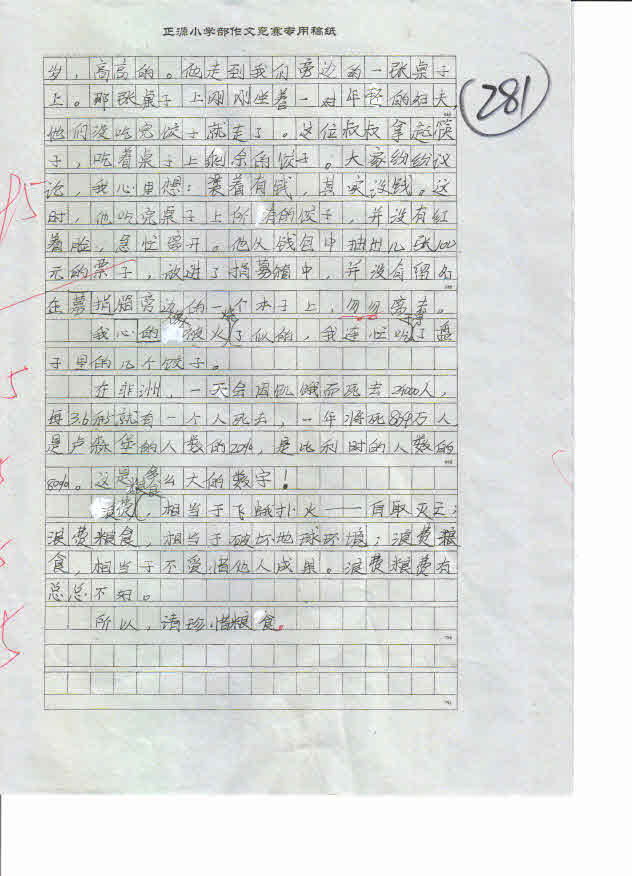 正源小学部作文竞赛专用稿纸
281
岁，高高的。他走到我们旁边的一张桌子
上。那张桌子上刚刚坐着一对年轻的妇夫，
他们没吃完饺子就走了。这位叔叔拿起筷
子，吃着桌子上剩余的饺子。大家纷纷议
论，我心里想：装着有钱，其实没钱。这
时，他吃完桌子上所有的饺子，并没有红
着脸，急忙离开。他从钱包中抽出几张100
元的票子，放进了捐募箱中，并没有留名
在募捐箱旁边的一个本子上，匆匆离去。
我心的像被火烧了似的，我连忙吃了盘
子里的几个饺子。
在非洲，一天会因饥饿而死去24000人，
每3.6秒就有一个人死去，一年将死864万人，
是卢森堡的人数的20%，是比利时的人数的
80%。这是多么大的数字！
浪费粮食，相当于飞蛾扑火——自取灭亡；
浪费粮食，相当于破坏地球环境；浪费粮
食，相当于不爱惜他人成果。浪费粮费有
总总不好。
所以，请珍惜粮食。